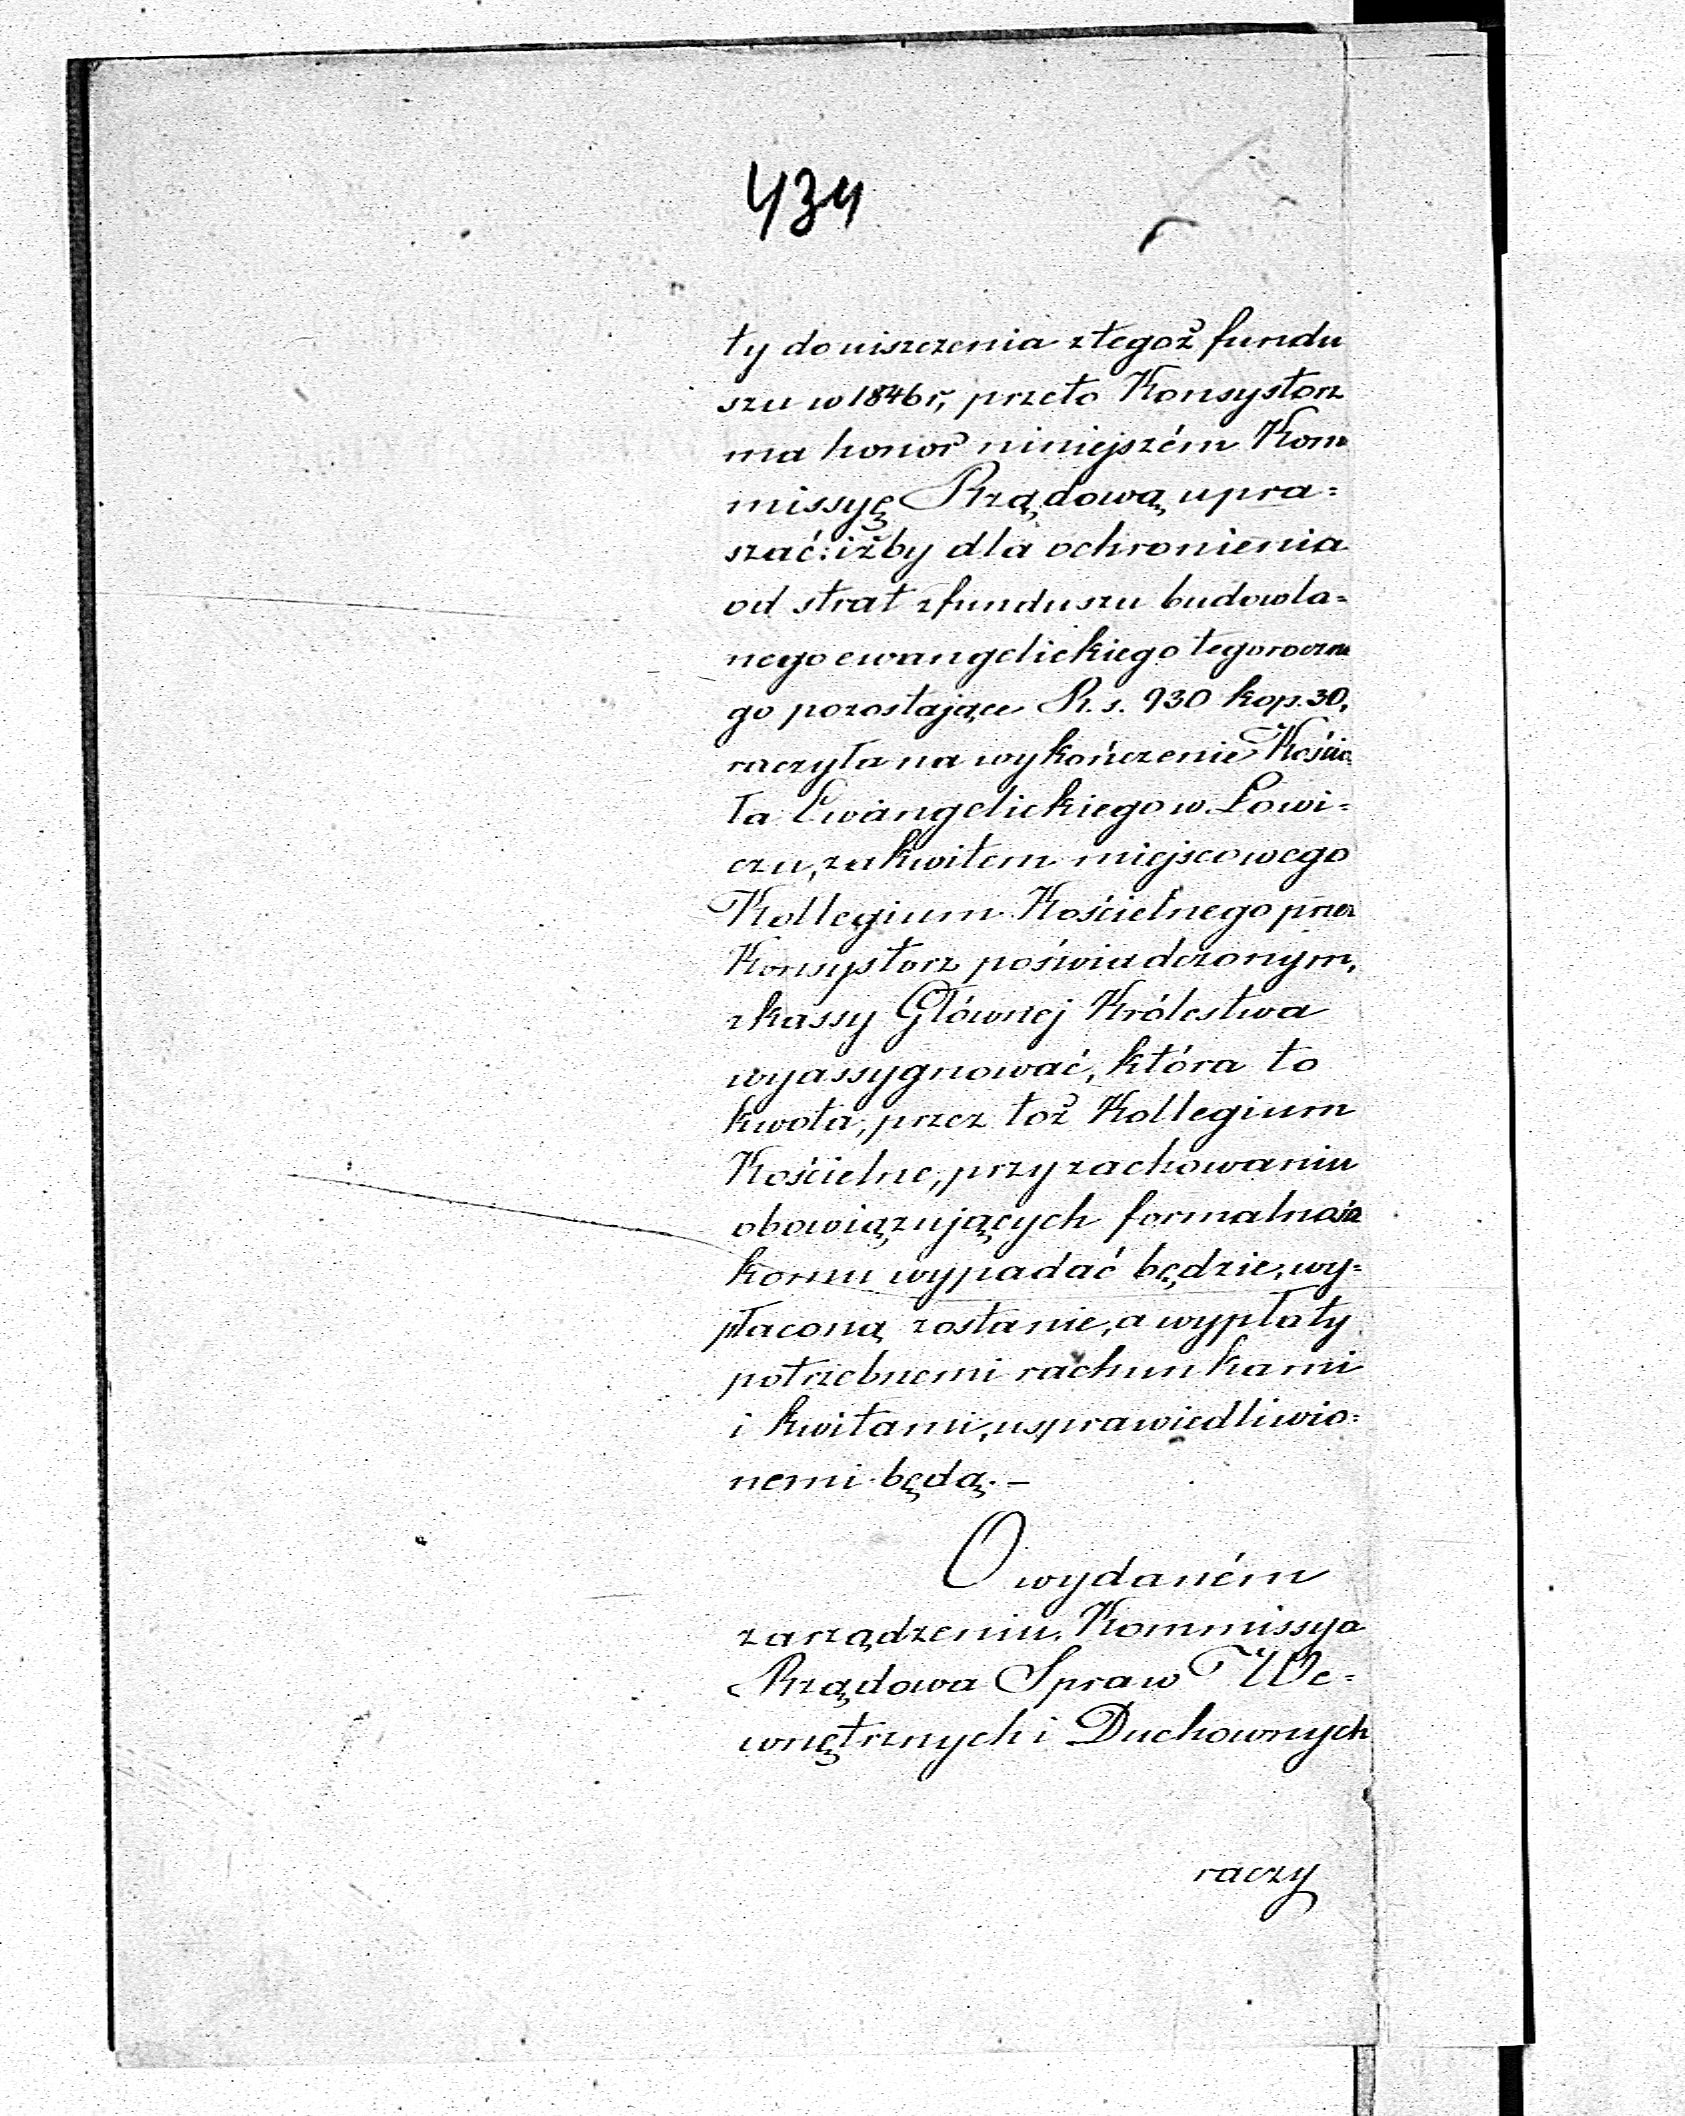 434
ty do uiszczenia z tegoż fundu
szu w 1846 r, przeto Konsystorz
ma honor niniejszém Kom
missyę Rządową upra=
szać: iżby dla ochronienia
od strat z funduszu budowla=
nego ewangelickiego tegoroczne
go pozostające R. s. 930 kop. 30,
raczyła na wykończenie Kościo
ła Ewangelickiego w Łowi=
czu, za kwitem miejscowego
Kollegium Kościelnego przez
Konsystorz poświadczonym,
z kassy Głównej Królestwa
wyassygnować, która to
kwota, przez toż Kollegium
Kościelne, przy zachowaniu
obowiązujących formalności
komu wypadać będzie, wy=
płaconą zostanie, a wypłaty
potrzebnemi rachunkami
i kwitami, usprawiedliwio=
nemi będą. –
O wydaném
zarządzeniu, Kommissya
Rządowa Spraw We=
wnętrznych i Duchownych
raczy